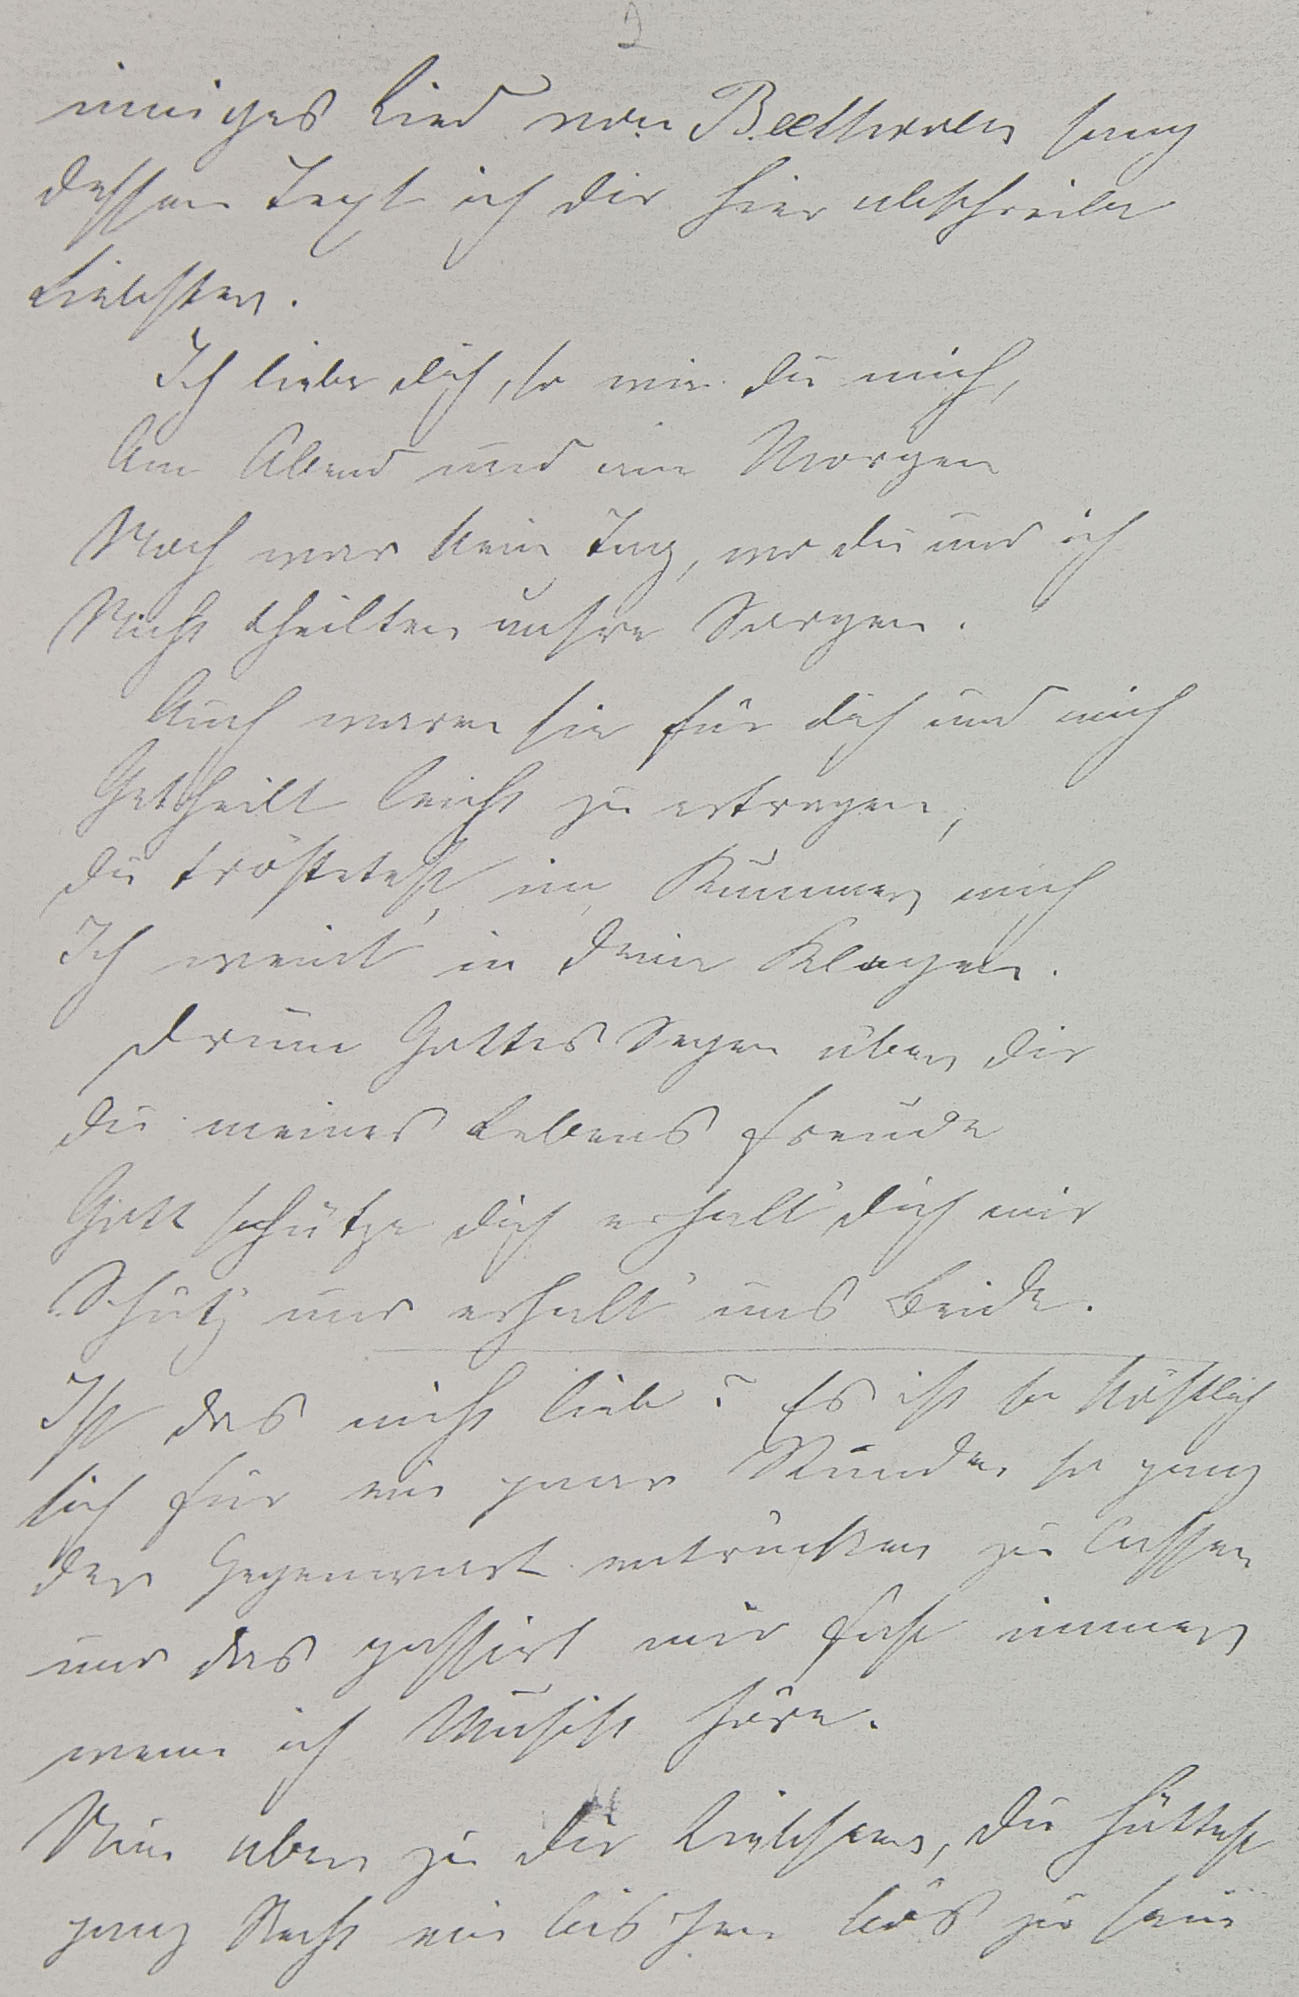 inniges Lied von Beethoven sang
dessen Text ich dir hier abschreibe
Liebster.
Ich liebe dich, so wie du mich,
Am Abend und am Morgen
Noch war kein Tag, wo du und ich
Nicht theilten unsre Sorgen.
Auch waren sie für dich und mich
Getheilt leicht zu ertragen,
du tröstetest im Kummer mich
Ich weint in deine Klagen.
Drum Gottes Segen über dir
du meines Lebens Freude
Gott schütze dich erhalt' dich mir
Schütz und erhalt' uns Beide.
Ist das nicht lieb? Es ist so köstlich
sich für ein paar Stunden so ganz
der Gegenwart entrücken zu lassen
und das passirt mir fast immer
wenn ich Musik höre.
Nun aber zu dir Liebster, du hättest
ganz Recht ein bischen bös zu sein